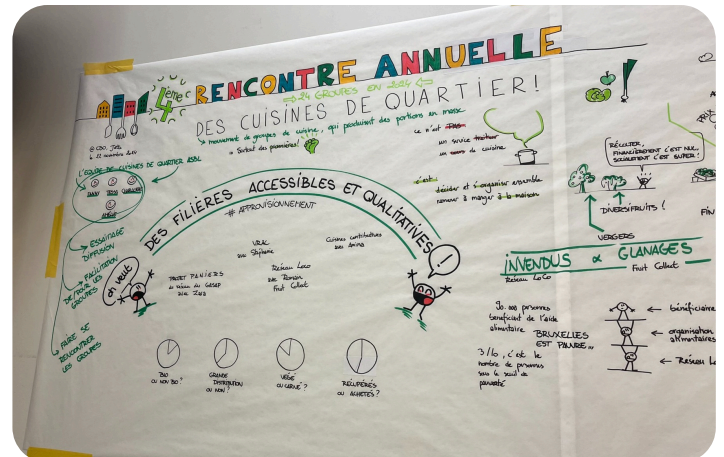 4ème
RENCONTRE ANNUELLE
24 GROUPES EN 2024
DES CUISINES DE QUARTIER!
mouvement de groupes de cuisine, qui produisent des portions en masse
Surtout des pionnières!
ce n'est PAS
un service traiteur
un cours de cuisine
c'est
décider et s'organiser ensemble
ramener à manger à la maison
L'ÉQUIPE DE CUISINES DE QUARTIER ASBL
ESSAIMAGE
DIFFUSION
FACILITATION
DE/POUR LES
GROUPES
FAIRE SE
RENCONTRER
LES GROUPES
on veut
DES FILIÈRES ACCESSIBLES ET QUALITATIVES
!
# APPROVISIONNEMENT
VRAC
avec Stéphanie
Cuisines contributives
avec Amina
PROJET PANIERS
avec Zoé
Réseau Loco
avec Romain
Fruit Collect
BIO
OU NON BIO?
GRANDE
DISTRIBUTION
OU NON?
VÉGÉ
OU CARNÉ?
RÉCUPÉRÉS
OU ACHETÉS?
RÉCOLTER,
FINANCIÈREMENT C'EST NUL,
SOCIALEMENT C'EST SUPER!
DIVERSIFRUITS!
VERGERS
INVENDUS & GLANAGES
Réseau LoCo
Fruit Collect
personnes
bénéficient de l'aide
alimentaire
BRUXELLES
EST PAUVRE...
3/10, c'est le
nombre de personnes
sous le seuil de
pauvreté
bénéficiaire
organisation
alimentaires
Réseau L